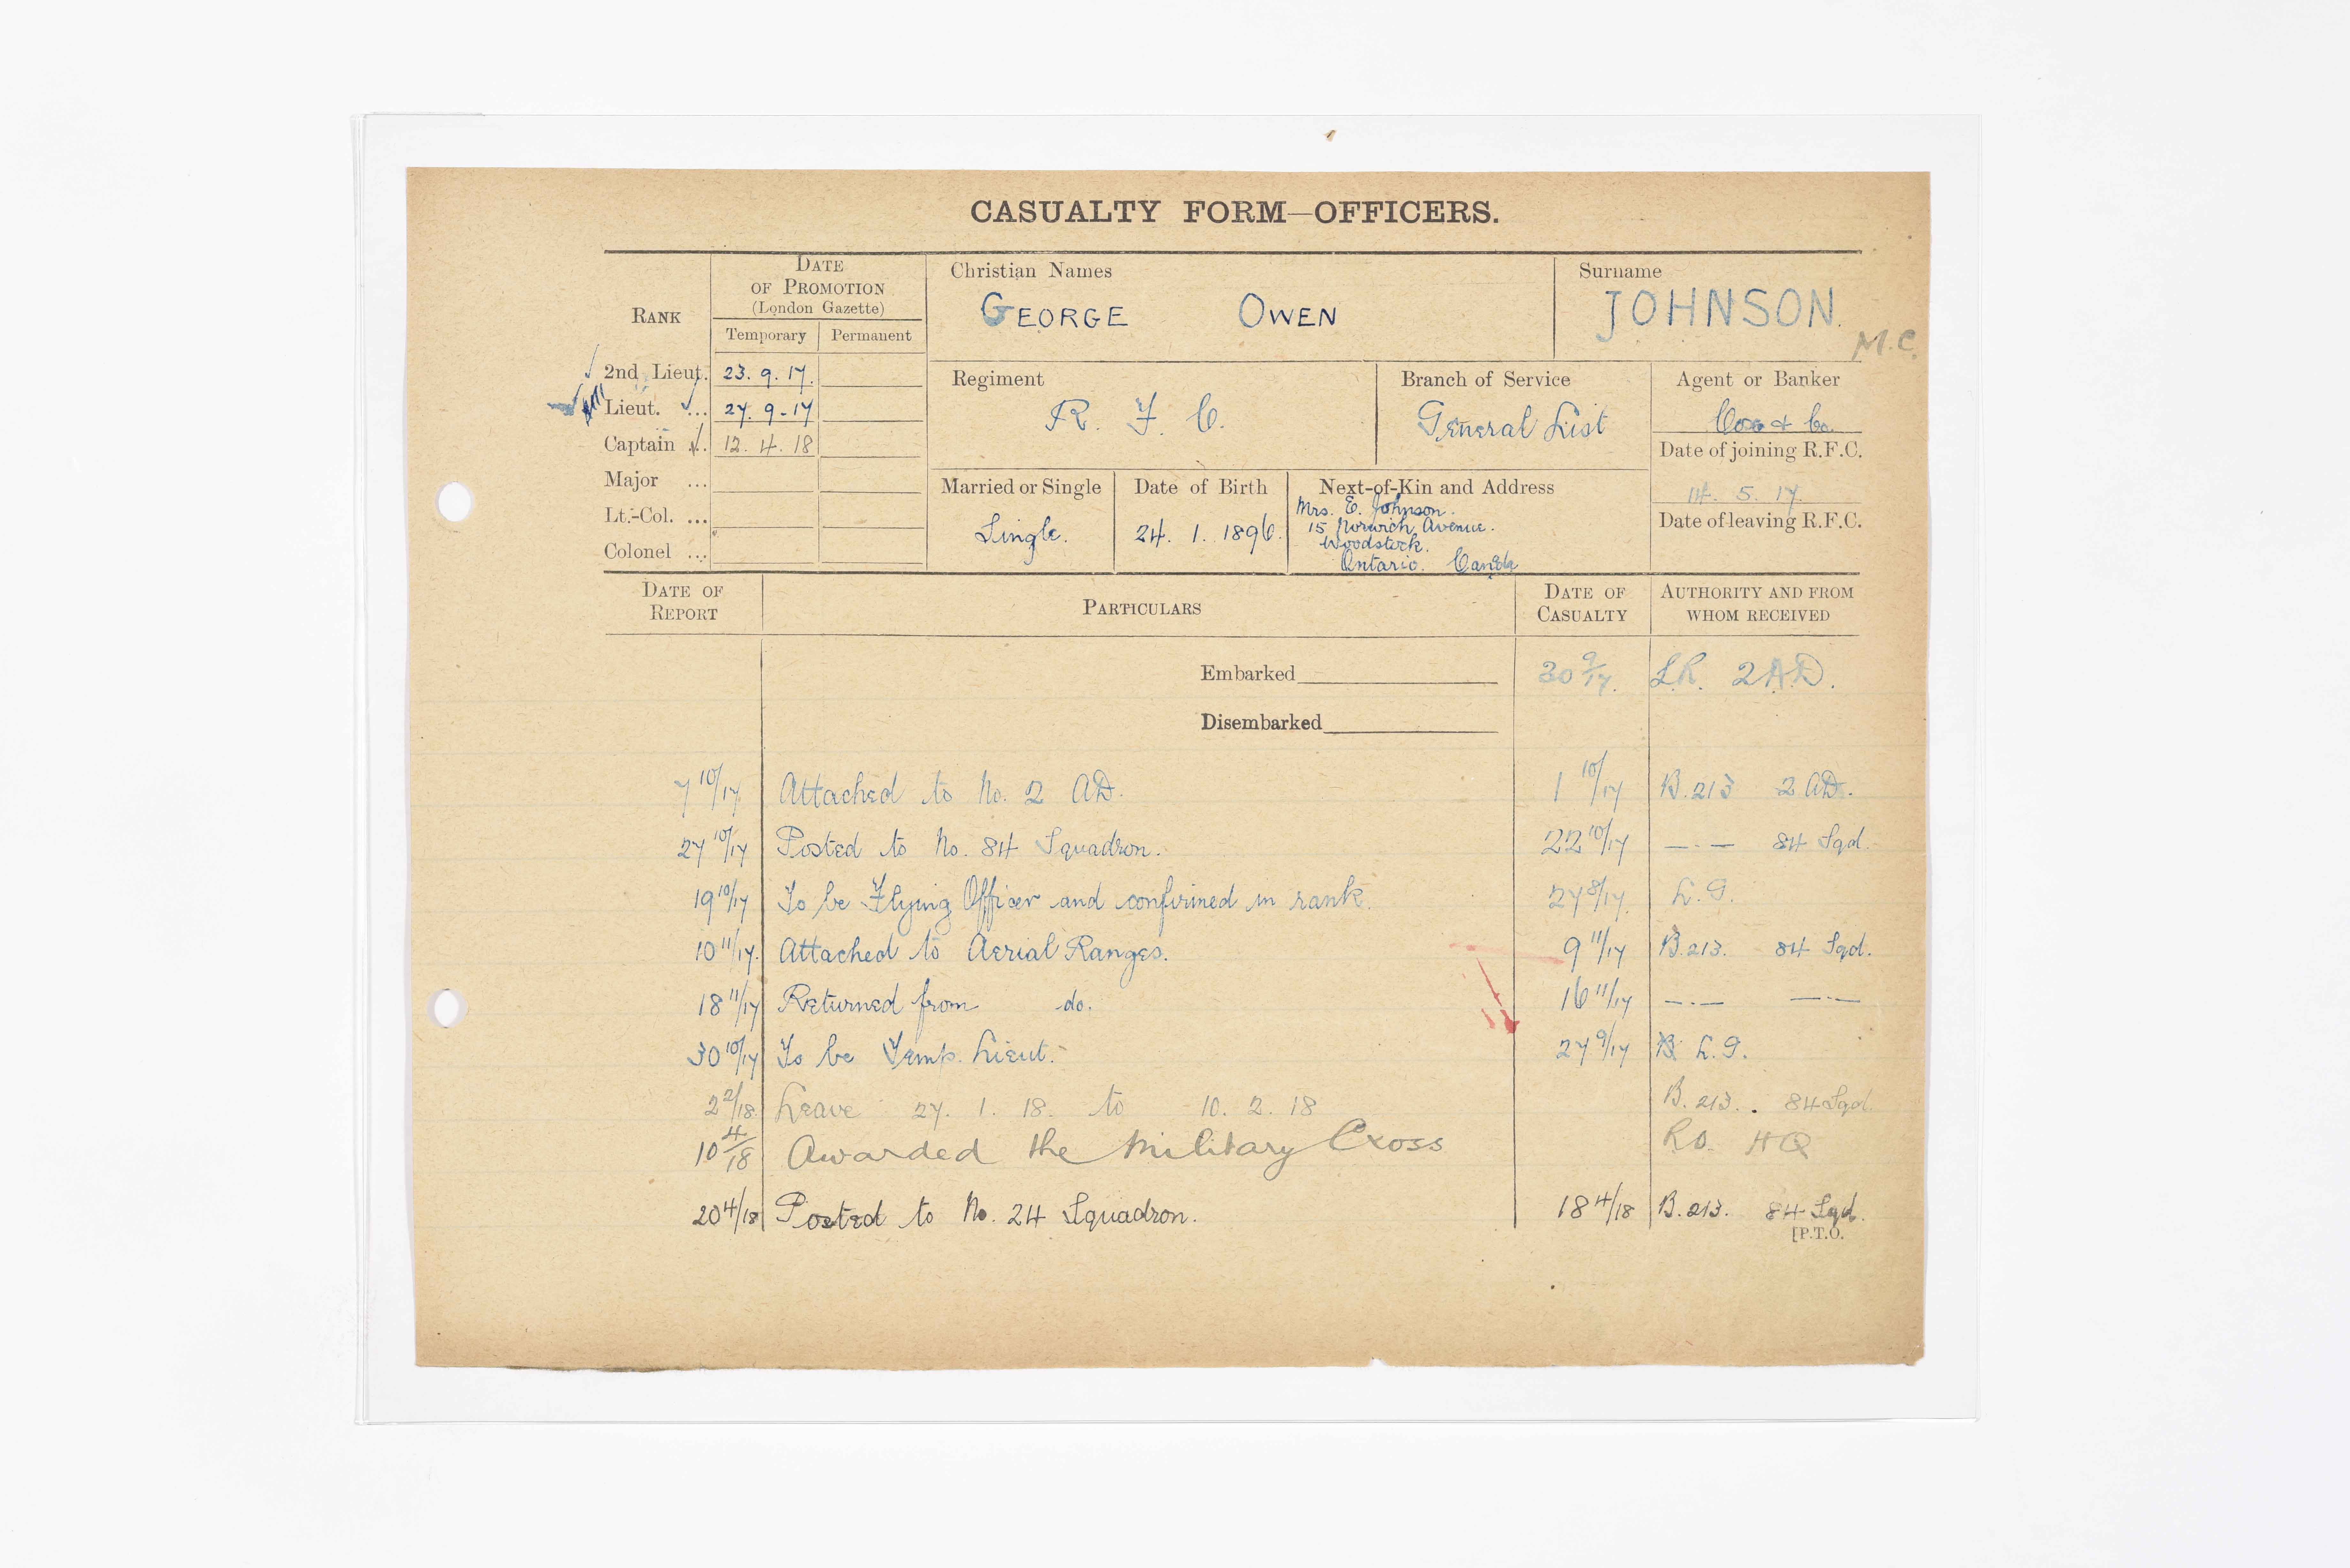 CASUALTY FORM—OFFICERS.
RANK
DATE
OF PROMOTION
(London Gazette)
Temporary Permanent
Christian Names
GEORGE OWEN
Surname
JOHNSON.
M.C.
2nd Lieut. 23. 9. 17.
Lieut. ... 27. 9-17
Captain ... 12. 4. 18
Major ...
Lt.-Col. ...
Colonel ...
Regiment
R. F. C.
Branch of Service
General List
Agent or Banker
Cox & Co.
Date of joining R.F.C.
14. 5. 17.
Date of leaving R.F.C.
Married or Single
Single.
Date of Birth
24. 1. 1896.
Next-of-Kin and Address
Mrs. E. Johnson.
15 Norwich Avenue.
Woodstock.
Ontario. Canada
DATE OF
REPORT
PARTICULARS
DATE OF
CASUALTY
AUTHORITY AND FROM
WHOM RECEIVED
Embarked 30 9/17. 2 A.D.
Disembarked
7 10/17 Attached to No. 2 AD. 1 10/17 B.213 2 AD.
27 10/17 Posted to No. 84 Squadron. 22 10/17 —·— 84 Sqd.
19 10/17 To be Flying Officer and confirmed in rank. 27 8/17. L.G.
10 11/17. Attached to Aerial Ranges. 9 11/17 B.213. 84 Sqd.
18 11/17 Returned from do. 16 11/17 —·— —·—
30 10/17 To be Temp. Lieut. 27 9/17 L.G.
2 2/18. Leave 27. 1. 18. to 10. 2. 18 B.213. 84 Sqd.
10 4/18 Awarded the Military Cross RO. HQ
20 4/18 Posted to No. 24 Squadron. 18 4/18 B.213. 84 Sqd.
[P.T.O.